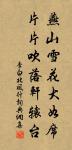 燕山雪花大如席
片片吹落軒轅台
李白北風行詞典網集